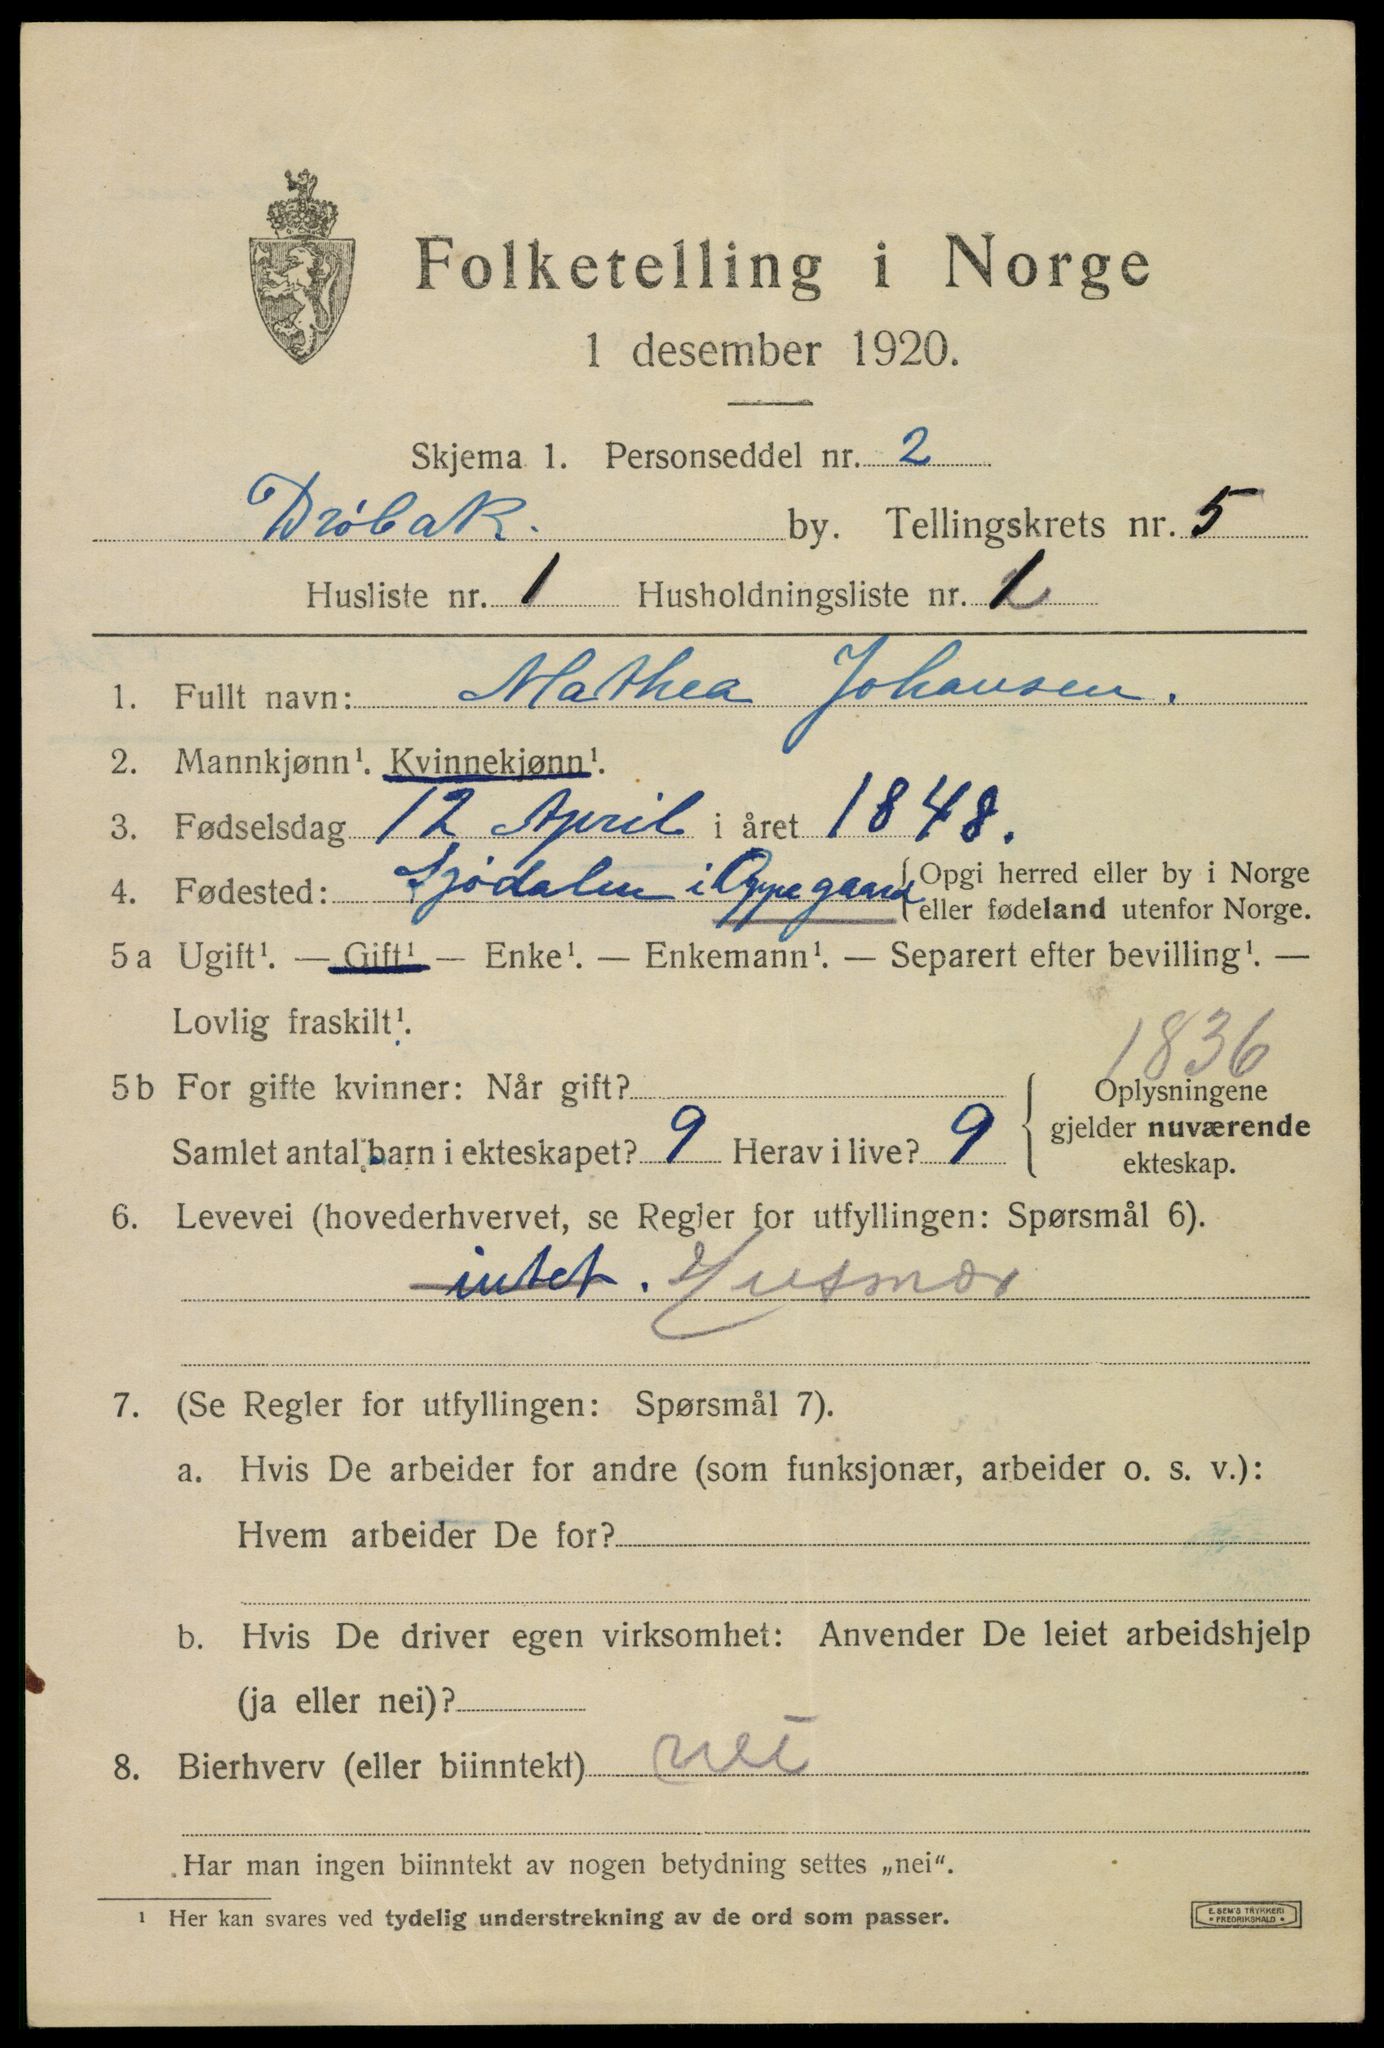 Folketelling i Norge
1 desember 1920.
Skjema 1. Personseddel nr. 2
Drøbak. by. Tellingskrets nr. 5
Husliste nr. 1 Husholdningsliste nr. 1
1. Fullt navn: Mathea Johansen.
2. Mannkjønn¹. Kvinnekjønn¹.
3. Fødselsdag 12 April i året 1848.
4. Fødested: Sjødalen i Oppegaard { Opgi herred eller by i Norge
eller fødeland utenfor Norge.
5a Ugift¹. — Gift¹ — Enke¹. — Enkemann¹. — Separert efter bevilling¹. —
Lovlig fraskilt¹.
1836
5b For gifte kvinner: Når gift?
Samlet antal barn i ekteskapet? 9 Herav i live? 9
{ Oplysningene
gjelder nuværende
ekteskap.
6. Levevei (hovederhvervet, se Regler for utfyllingen: Spørsmål 6).
intet. Husmor
7. (Se Regler for utfyllingen: Spørsmål 7).
a. Hvis De arbeider for andre (som funksjonær, arbeider o. s. v.):
Hvem arbeider De for?
b. Hvis De driver egen virksomhet: Anvender De leiet arbeidshjelp
(ja eller nei)?
8. Bierhverv (eller biinntekt) nei
Har man ingen biinntekt av nogen betydning settes „nei“.
¹ Her kan svares ved tydelig understrekning av de ord som passer.
E. SEM'S TRYKKERI
• FREDRIKSHALD •